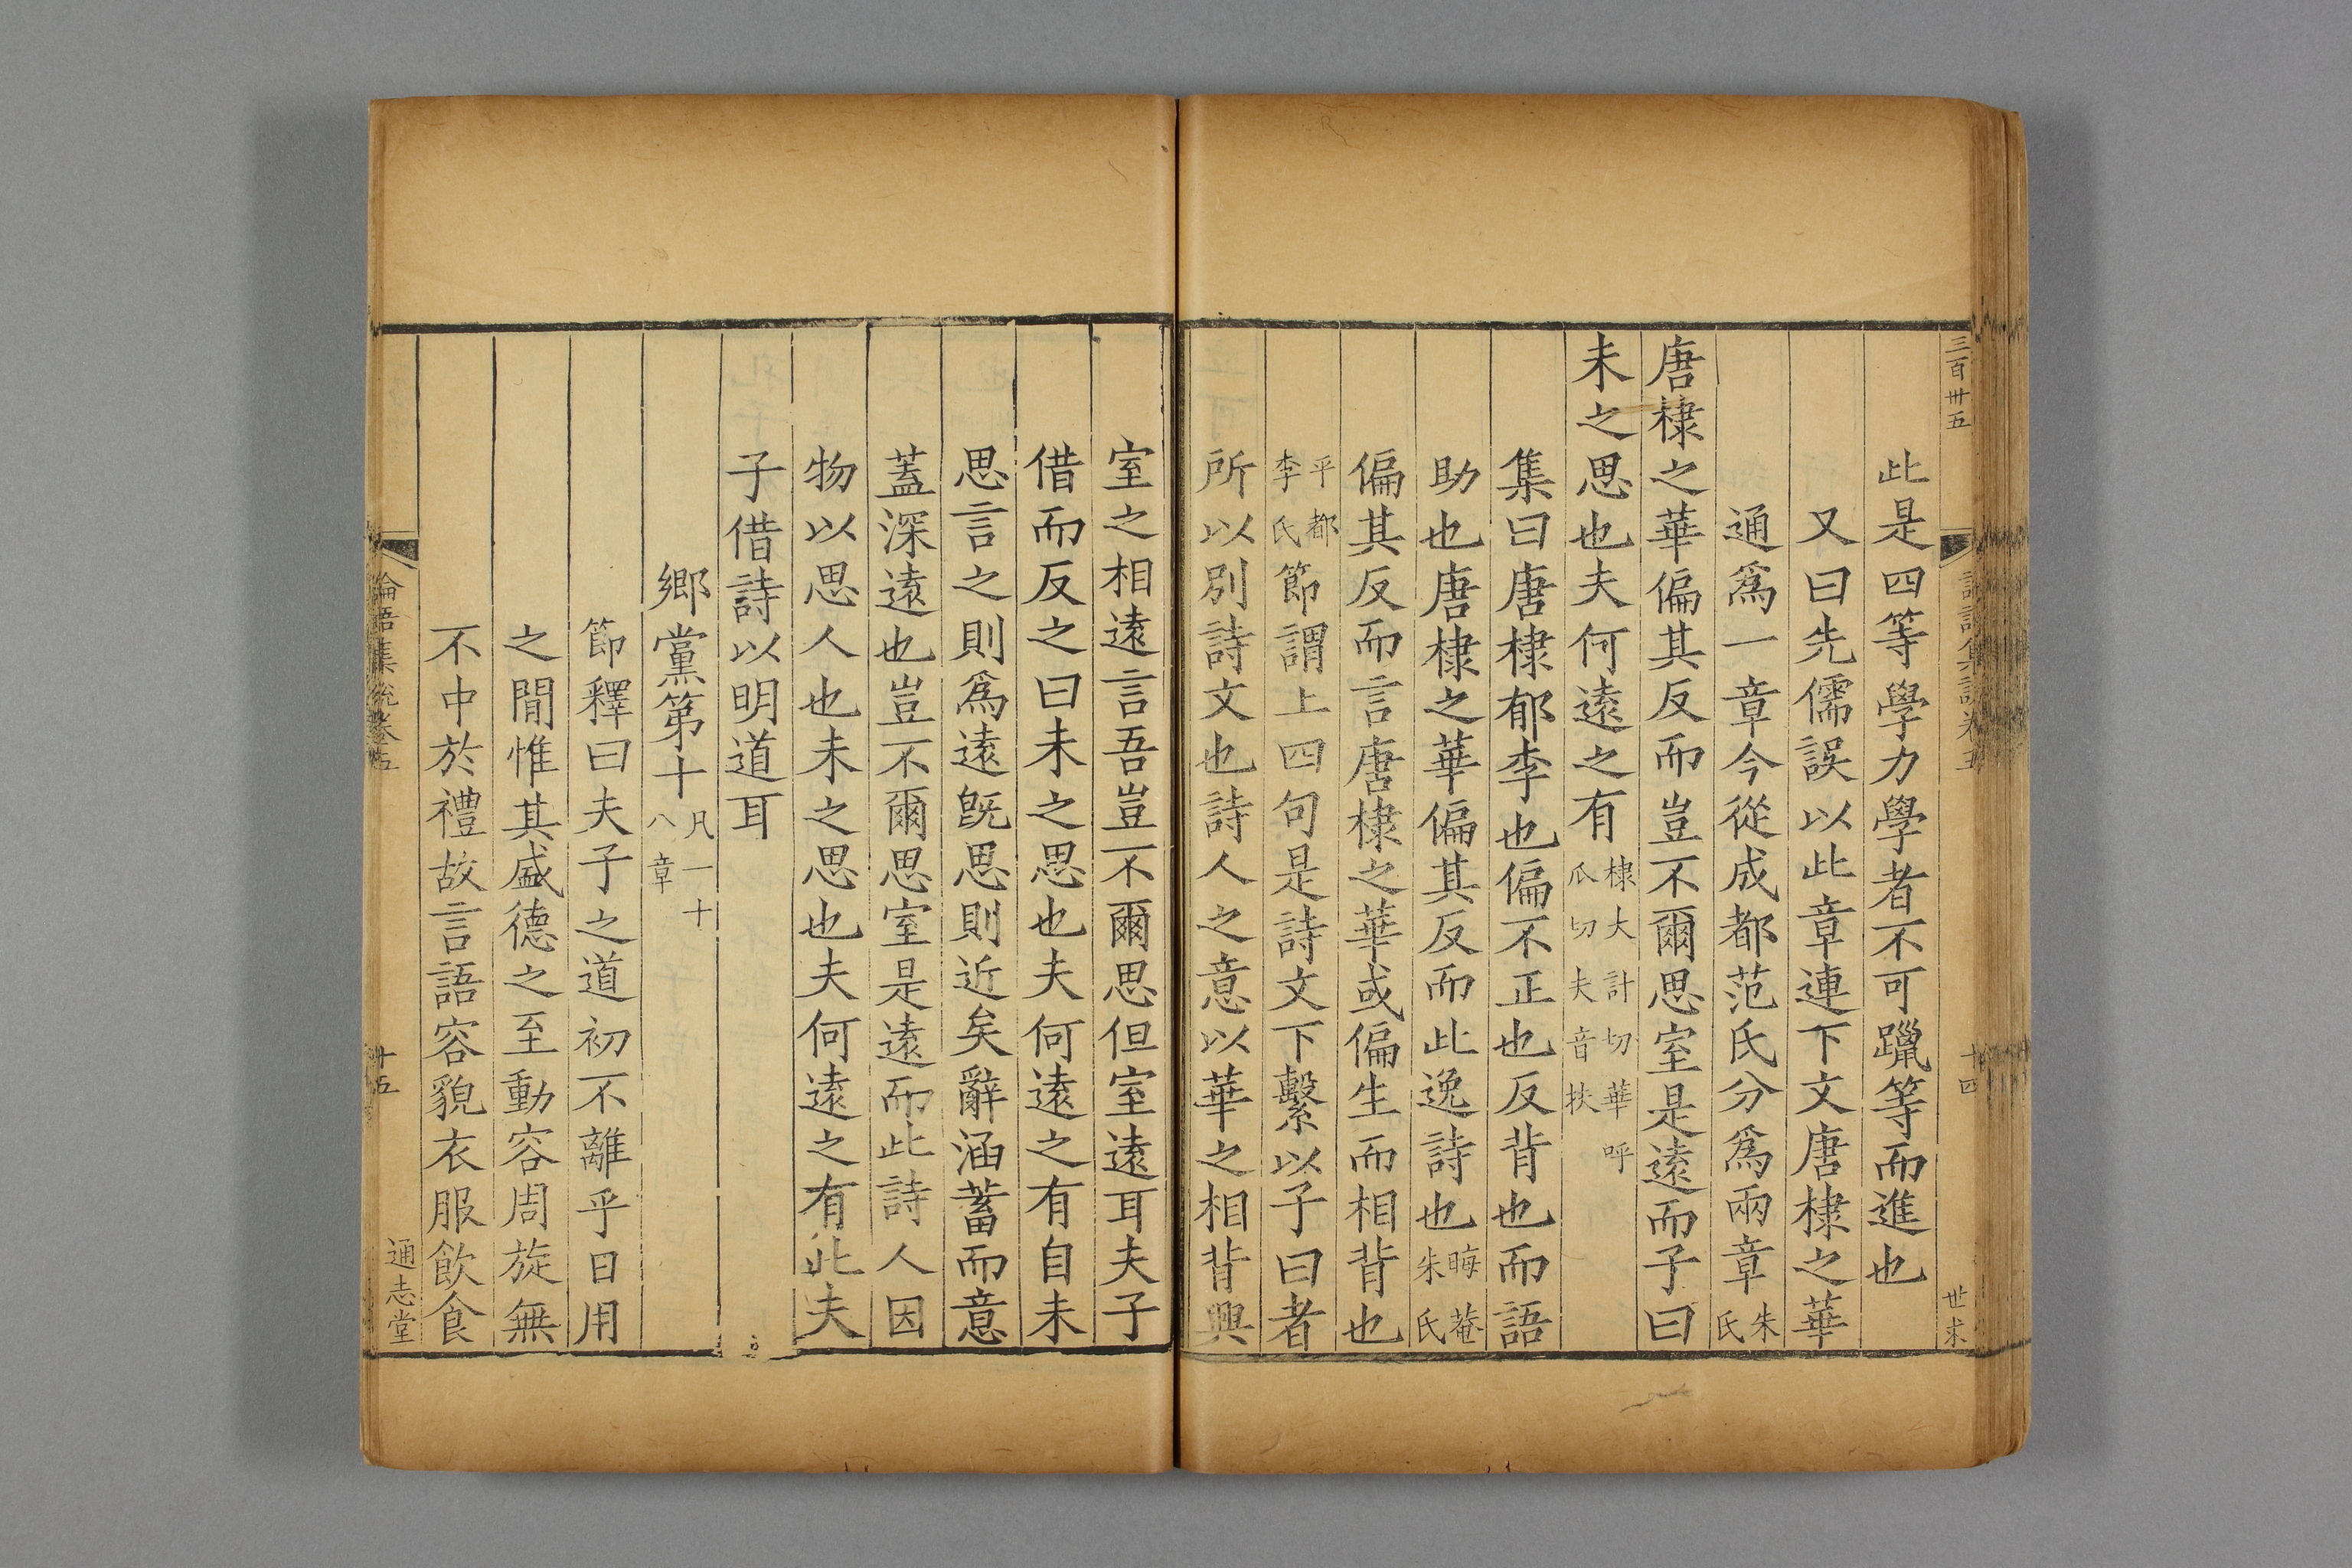 三百卅五
十四
世求
此是四等學力學者不可躐等而進也
又曰先儒誤以此章連下文唐棣之華
通爲一章今從成都范氏分爲兩章朱氏
唐棣之華偏其反而豈不爾思室是遠而子曰
未之思也夫何遠之有棣大計切華呼瓜切夫音扶
集曰唐棣郁李也偏不正也反背也而語
助也唐棣之華偏其反而此逸詩也晦菴朱氏
偏其反而言唐棣之華或偏生而相背也
平都李氏節謂上四句是詩文下繫以子曰者
所以別詩文也詩人之意以華之相背興
室之相遠言吾豈不爾思但室遠耳夫子
借而反之曰未之思也夫何遠之有自未
思言之則爲遠旣思則近矣辭涵蓄而意
蓋深遠也豈不爾思室是遠而此詩人因
物以思人也未之思也夫何遠之有此夫
子借詩以明道耳
鄉黨第十凡一十八章
節釋曰夫子之道初不離乎日用
之閒惟其盛德之至動容周旋無
不中於禮故言語容貌衣服飲食
論語集卷五
十五
通志堂